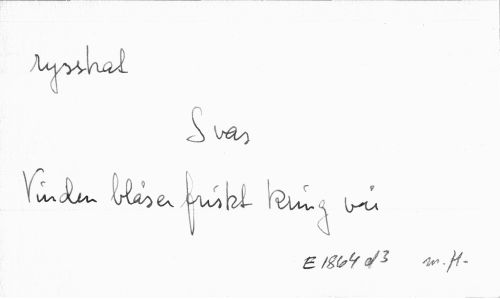 rysshat
Svar
Vinden blåser friskt kring vår
E 1864 d3 m.H.